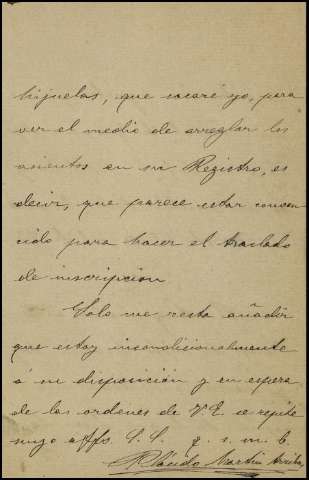 hijuelas, que sacaré yo, para
ver el medio de arreglar los
asientos en su Registro, es
decir, que parece estar conven
cido para hacer el traslado
de inscripcion
Solo me resta añadir
que estoy incondicionalmente
á su disposición y en espera
de las ordenes de V. E. se repite
suyo affo. S. S. q. s. m. b.
Plácido Martín Arribas